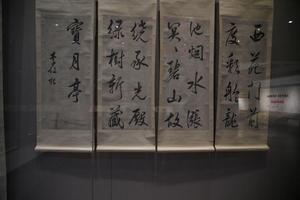 西苑
度彩舲龍
池烟水漲
冥〻碧山故
繞承光殿
綠樹新藏
寶月亭